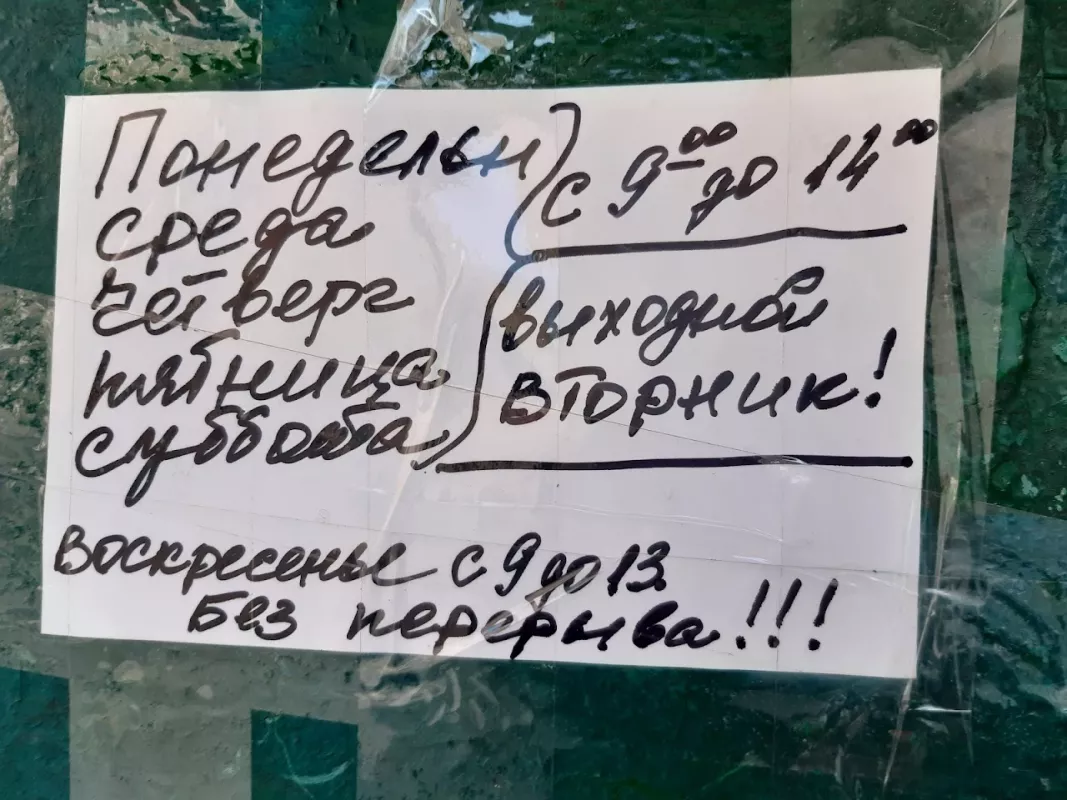 Понедельн
среда
четверг
пятница
суббота
с 9⁰⁰ до 14⁰⁰
выходной
вторник!
Воскресенье с 9 до 13.
Без перерыва!!!